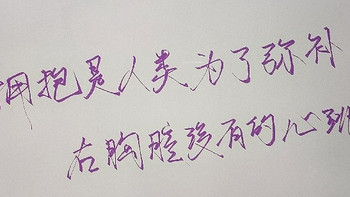 拥抱是人类为了弥补
右胸腔没有的心跳